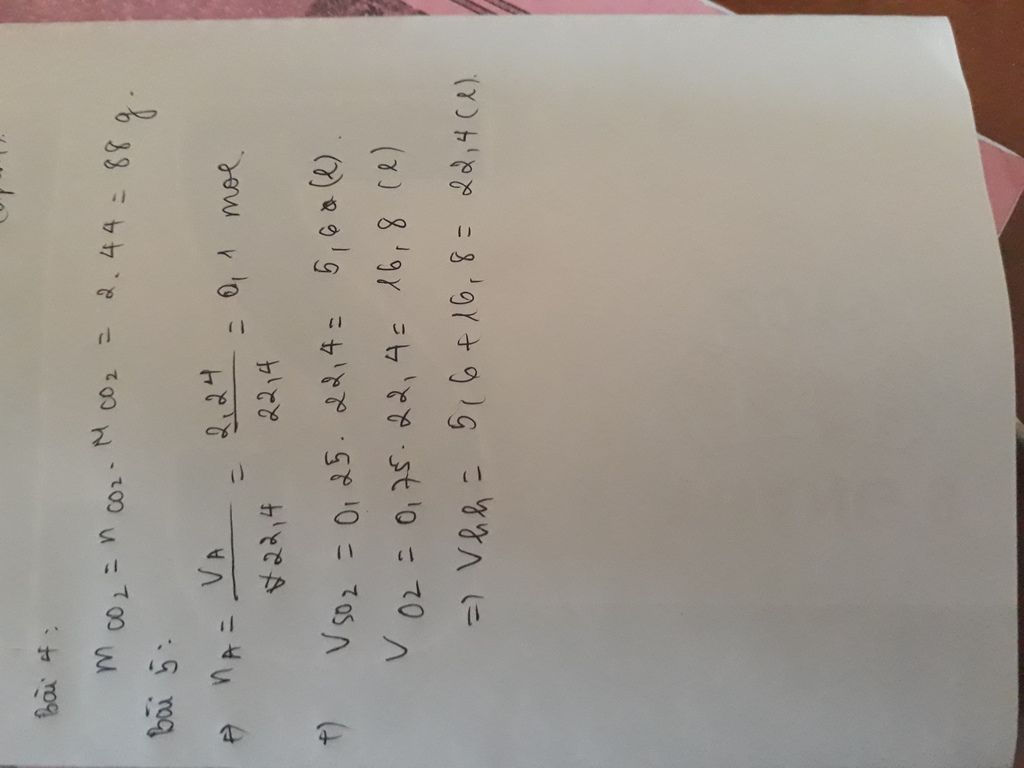 Bài 4:
m CO2 = n CO2 . M CO2 = 2 . 44 = 88 g.
Bài 5:
+) nA = VA / 22,4 = 2,24 / 22,4 = 0,1 mol.
+) V SO2 = 0,25 . 22,4 = 5,6 (l).
V O2 = 0,75 . 22,4 = 16,8 (l)
=> Vhh = 5,6 + 16,8 = 22,4 (l).